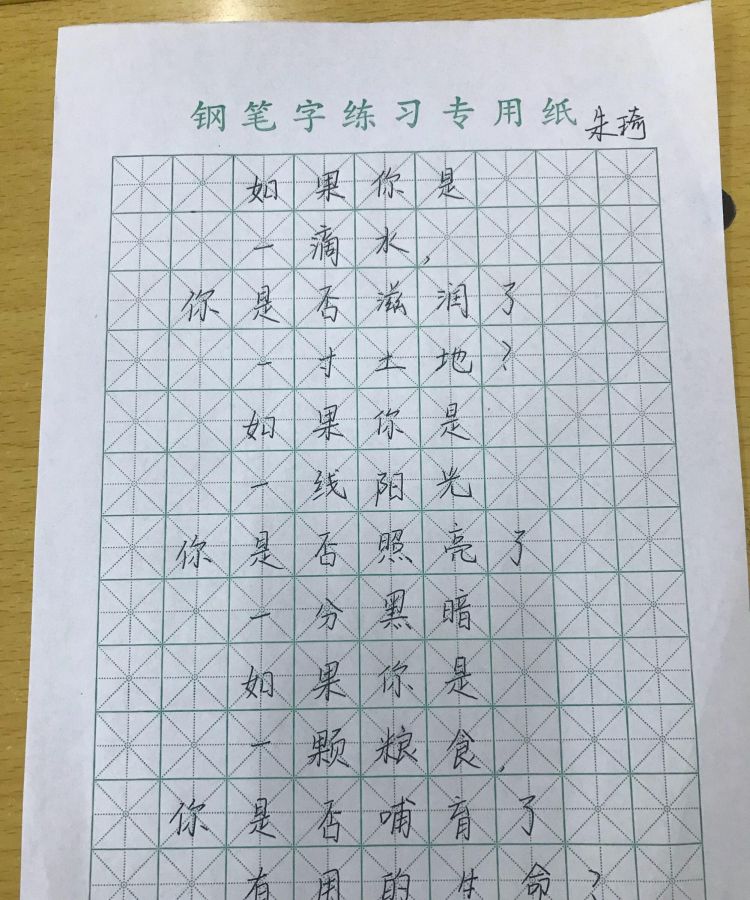 钢笔字练习专用纸
朱琦
如果你是
一滴水,
你是否滋润了
一寸土地?
如果你是
一线阳光
你是否照亮了
一分黑暗
如果你是
一颗粮食,
你是否哺育了
有用的生命?